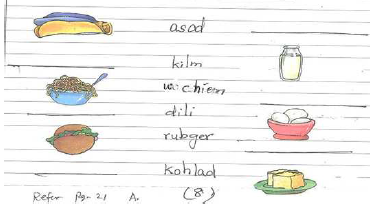 asod
kilm
michiem
dili
rubger
kohlad
Refer Pg. 21 A. (8)